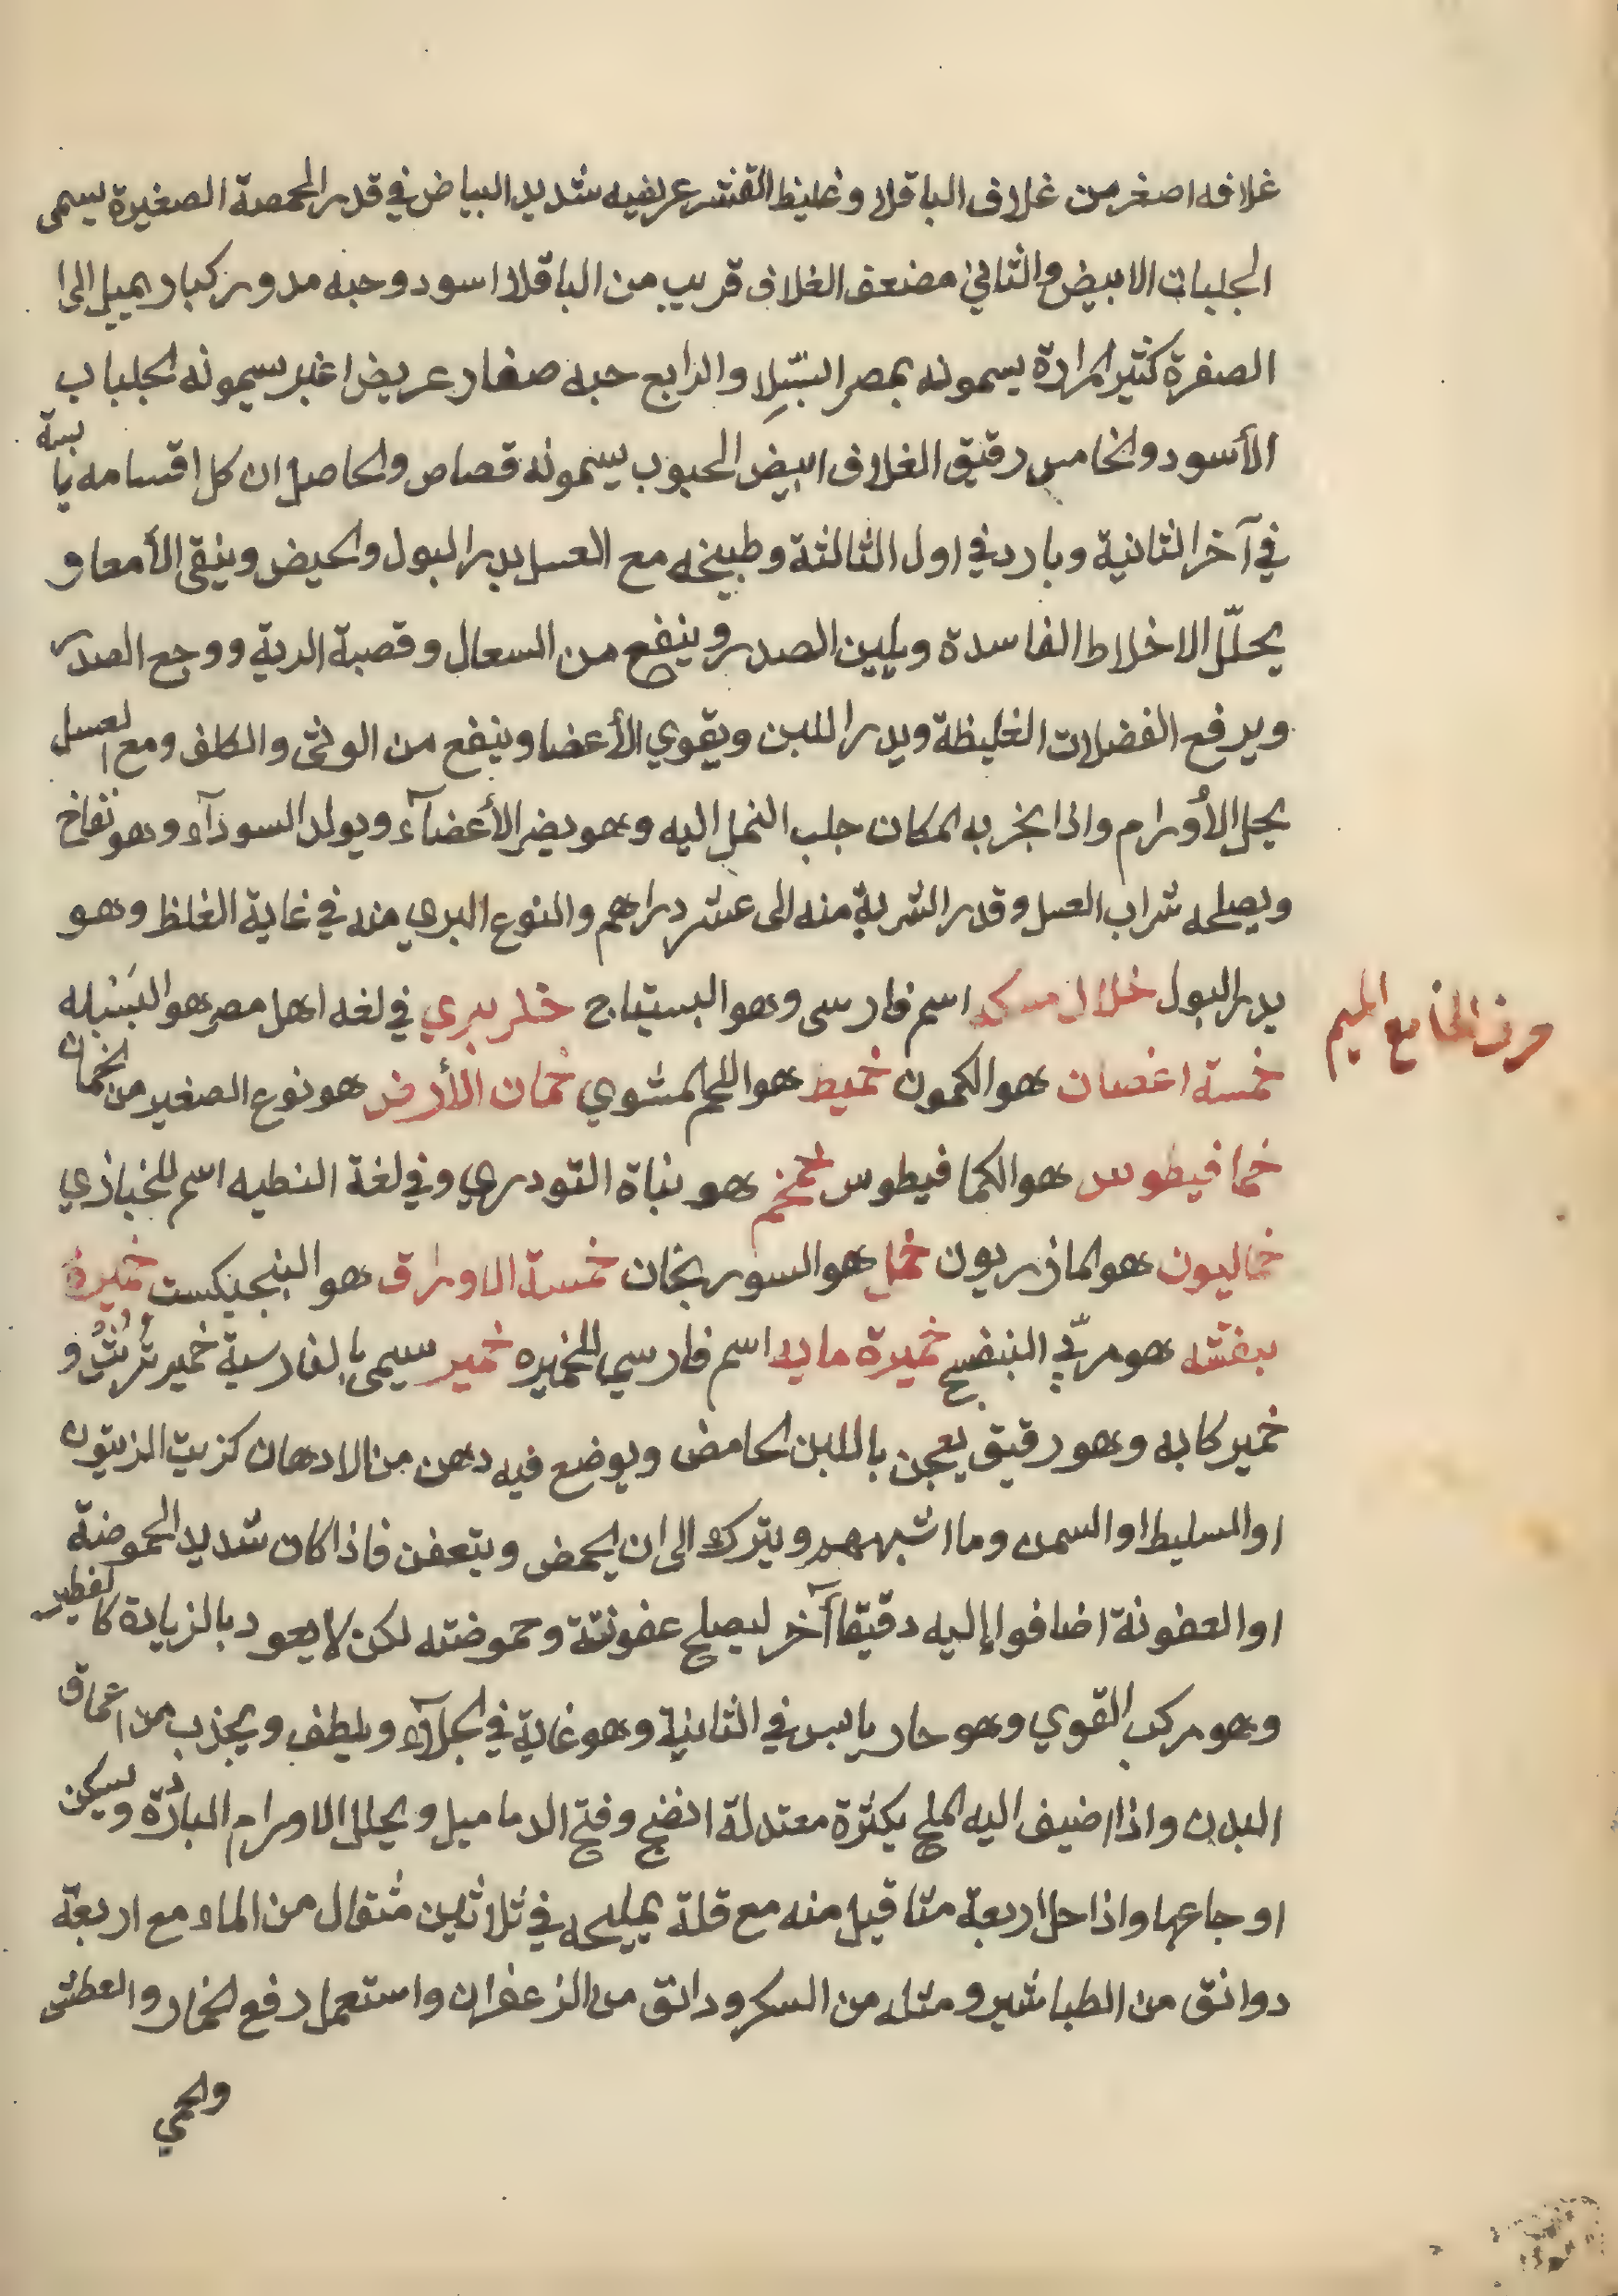 غلافه اصغر من غلاف الباقلا وغليظ القشر عريضه شديد البياض في قدر الحمصة الصغيرة يسمى
الجلبات الابيض والثاني مضعف الغلاف قريب من الباقلا اسود وحبه مدور كبار يميل الى ا
الصفرة كثير المرارة يسمونه بمصر البسّلِا والرابع حبه صغار عريض اغبر سيمونه الجلباب
الأسود والخامس رقيق الغلاف ابيض الحبوب يسمونه قصاص والحاصل ان كل اقسامه يابسة
في آخر الثانية وبارد في اول الثالثة وطبيخه مع العسل يدر البول والحيض وينقى الأمعا و
يحلّل الاخلاط الفاسدة ويلين الصدر وينفع من السعال وقصبة الرية ووجع الصدر
ويدفع الفضلات الغليظة ويدر اللبن ويقوي الأعضا وينفع من الوثى والكلف ومع العسل
يحلل الأورام واذا بخر به المكان جلب النمل اليه وهو يضر الأعضآء ويولد السودآء وهو نفاخ
ويصلحه شراب العسل وقدر الشربة منه الى عشر دراهم والنوع البري منه في غاية الغلظ وهو
يدر البول خلال مسكه اسم فارسى وهو البستياج خلر بري في لغه اهل مصر هو البَسَبله
حرف الخا مع الميم
خمسة اغصان هو الكمون خميط هو اللحم المشوي خمان الأرض هو نوع الصغير من الخمان
خما فيطوس هو الكما فيطوس خمخم هو نباة التودري وفي لغة النطيه اسم للخبازي
خماليون هو المازريون خمل هو السورنجان خمسة الاوراق هو البنجيكست خميرة
بنفشه هو مربّي البنفسج خميرة مايه اسم فارسي للخميره خمير سيمى بالفارسية خمير تُرُشْ و
خمير كابه وهو رقيق يعجن باللبن الحامض ويوضع فيه دهن من الادهان كزيت الزيتون
او السليط او السمن وما اشبههم ويترك الى ان يحمض ويتعفن فاذا كان شديد الحموضة
او العفونة اضافوا إليه دقيقا آخر ليصلح عفونته وحموضته لكن لا يعود بالزيادة كالفطير
وهو مركب القوي وهو حار يابس في الثانية وهو غاية في الجلآء ويلطف ويجذب من اعماق
البدن واذا اضيف اليه الملح بكثرة معتدلة انضج وفتح الدماميل ويحلل الاورام الباردة ويسكن
اوجاعها واذا حل اربعة مثاقيل منه مع قلة يمليحه في ثلاثين مثقال من الماء مع اربعة
دوانق من الطباشير ومثله من السكر ودانق من الزعفران واستعمل دفع الخمار والعطش
والحمي